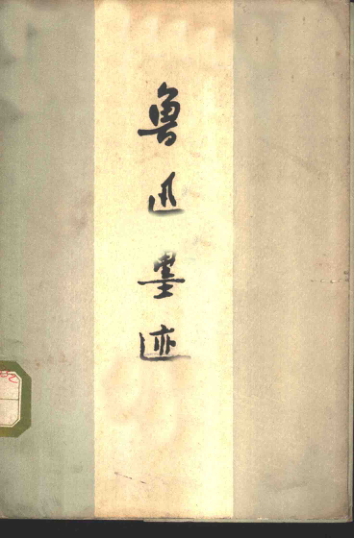 鲁迅墨迹